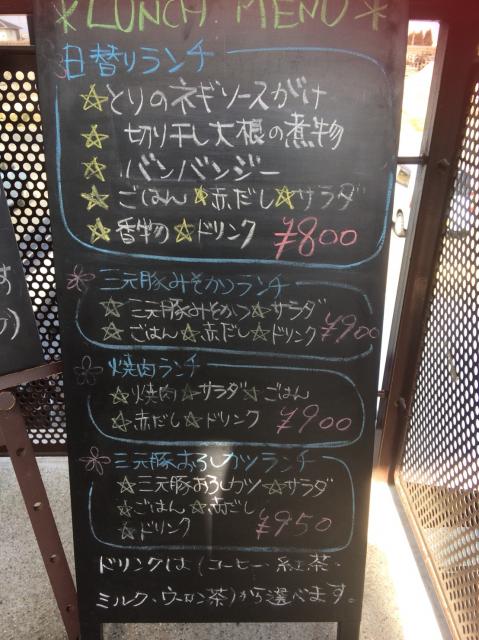 *LUNCH MENU*
日替りランチ
☆とりのネギソースがけ
☆切り干し大根の煮物
☆バンバンジー
☆ごはん☆赤だし☆サラダ
☆香物☆ドリンク ¥800
三元豚みそかつランチ
☆三元豚みそかつ☆サラダ
☆ごはん☆赤だし☆ドリンク ¥900
焼肉ランチ
☆焼肉☆サラダ☆ごはん
☆赤だし☆ドリンク ¥900
三元豚おろしカツランチ
☆三元豚おろしカツ☆サラダ
☆ごはん☆赤だし
☆ドリンク ¥950
ドリンクは(コーヒー・紅茶・
ミルク・ウーロン茶)から選べます。
す
)